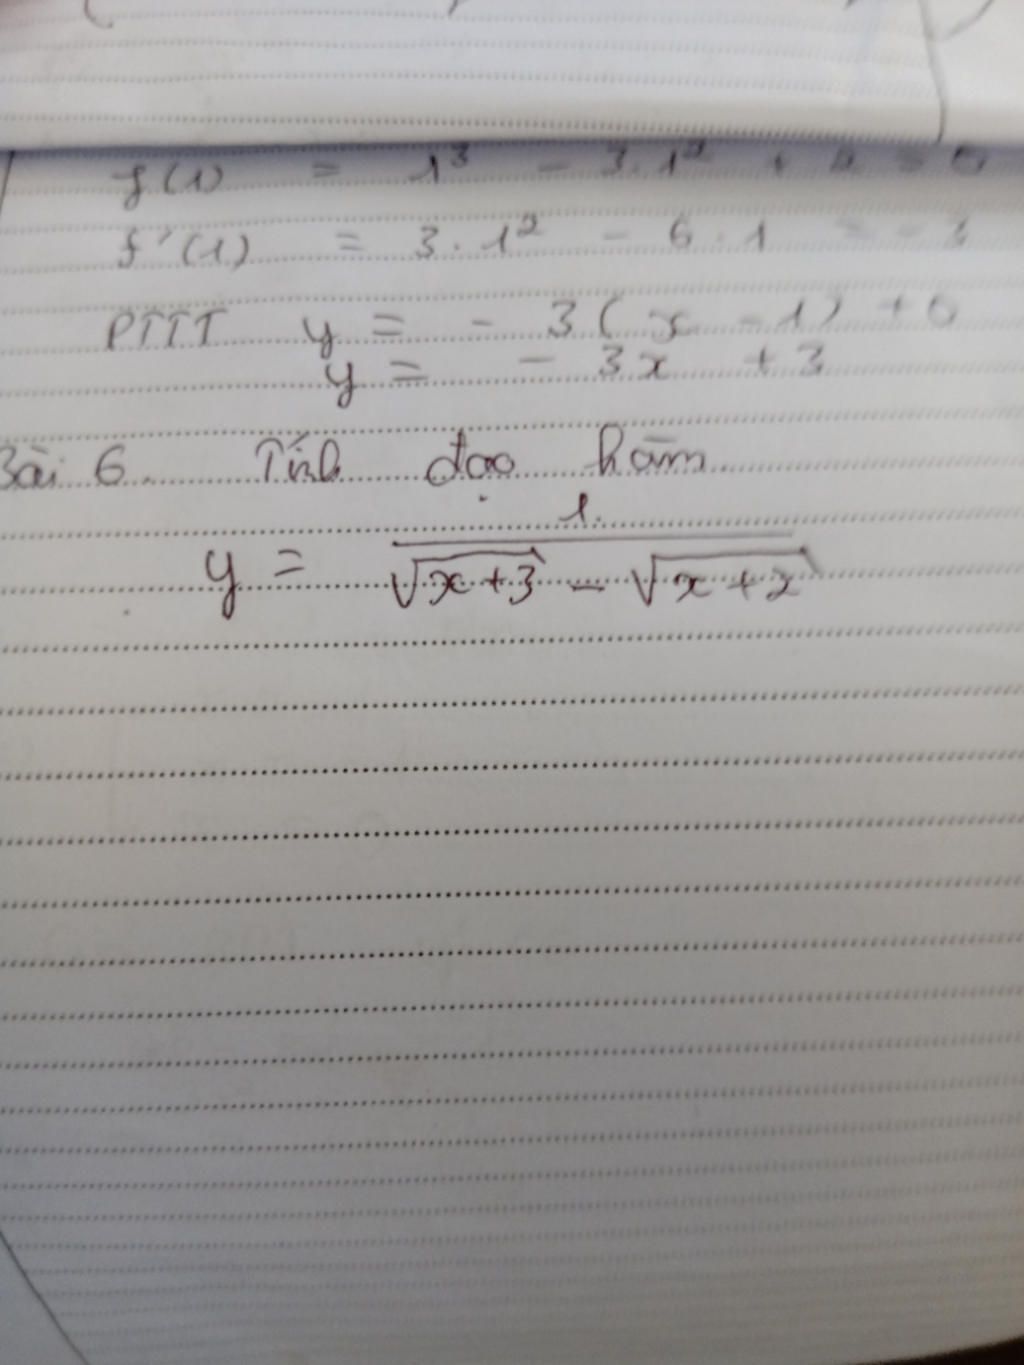 f(1) = 1³ - 3.1² + 2 = 0
f'(1) = 3.1² - 6.1 = -3
PTTT y = - 3(x - 1) + 0
y = - 3x + 3
Bài 6. Tính đạo hàm
y = 1 / (√(x+3) - √(x+2))